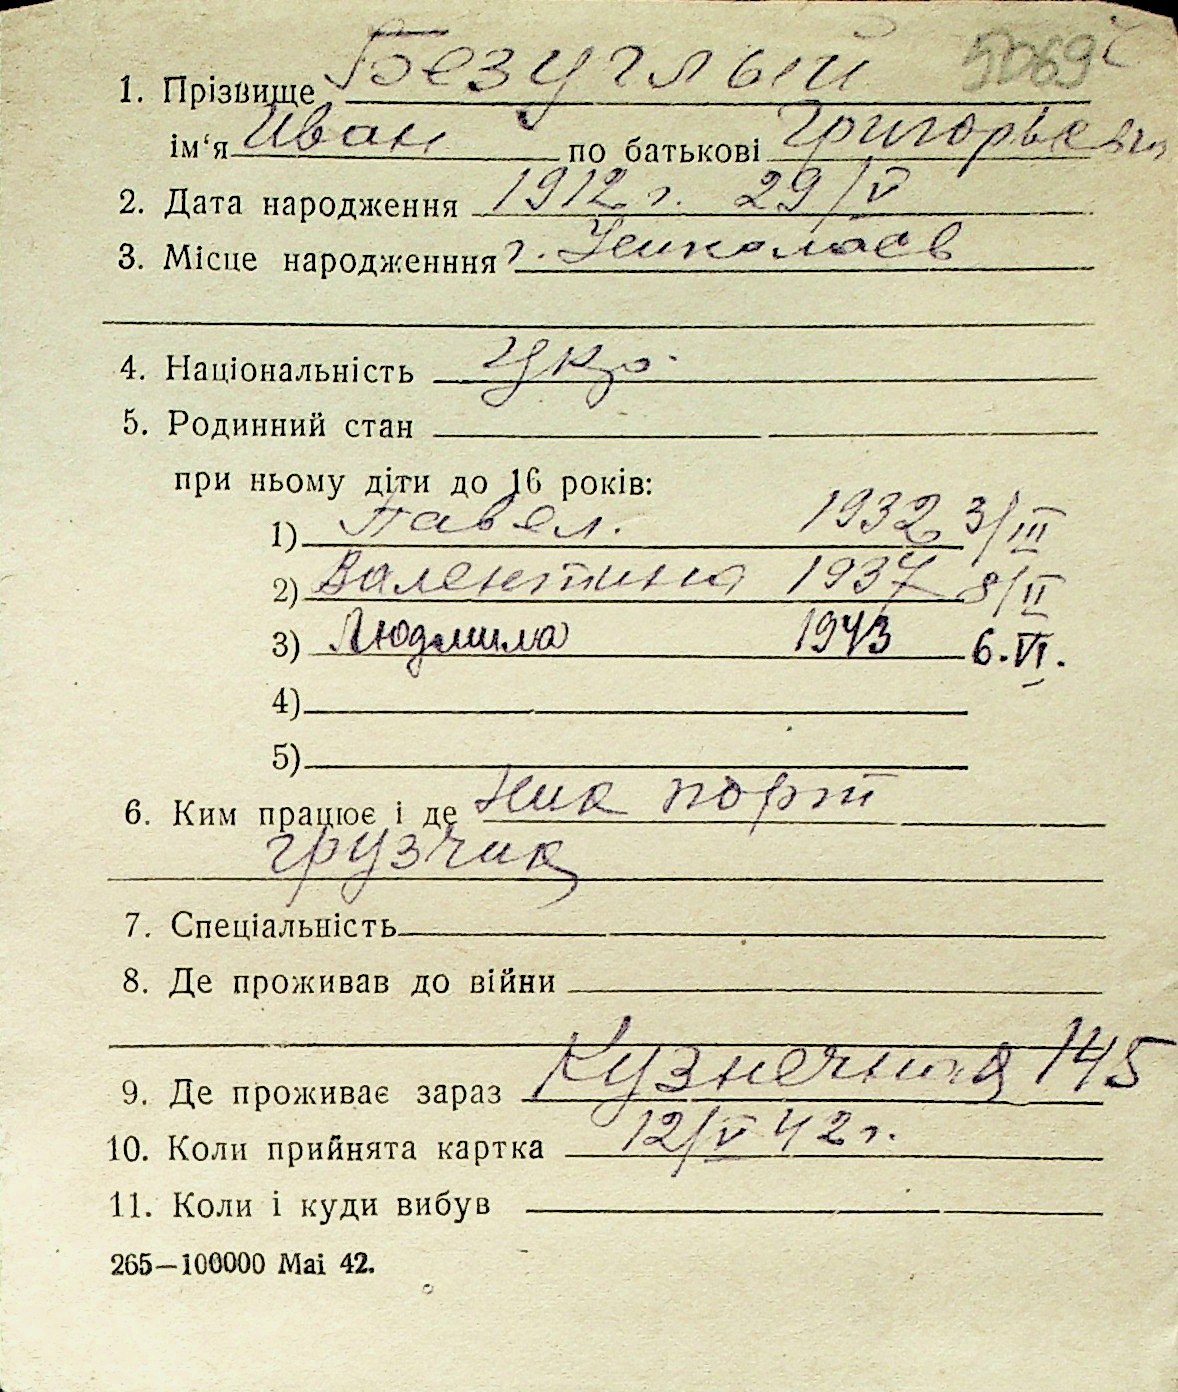 5069
1. Прізвище Безуглый
ім‘я Иван по батькові Григорьевич
2. Дата народження 1912 г. 29/V
3. Місце народженння г. Николаев
4. Національність Укр.
5. Родинний стан
при ньому діти до 16 років:
1) Павел. 1932 3/III
2) Валентина 1937 8/II
3) Людмила 1943 6.VI.
4)
5)
6. Ким працює і де Ник порт
грузчик
7. Спеціальність
8. Де проживав до війни
9. Де проживає зараз Кузнечная 145
10. Коли прийнята картка 12/V 42 г.
11. Коли і куди вибув
265—100000 Mai 42.